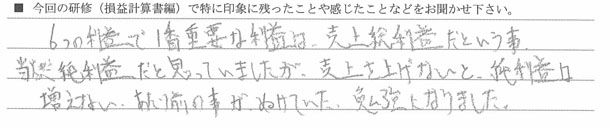 ■ 今回の研修（損益計算書編）で特に印象に残ったことや感じたことなどをお聞かせ下さい。
6つの利益で1番重要な利益は、売上総利益だという事。
当然純利益だと思っていましたが、売上を上げないと、純利益は
増えない、あたり前の事が、ぬけていた、勉強になりました。